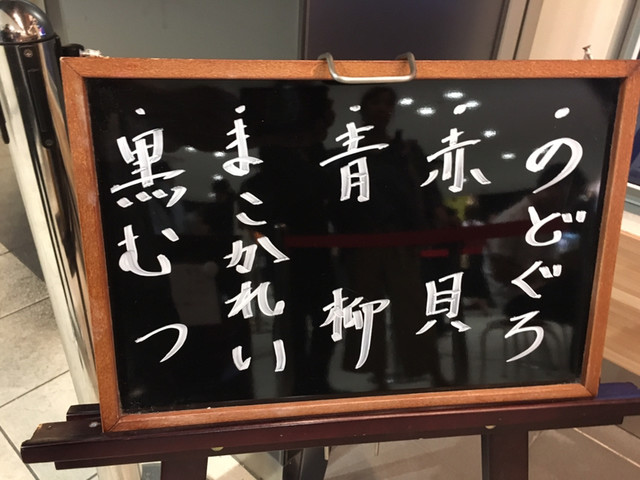 ・のどぐろ
・赤貝
・青柳
・まこかれい
・黒むつ